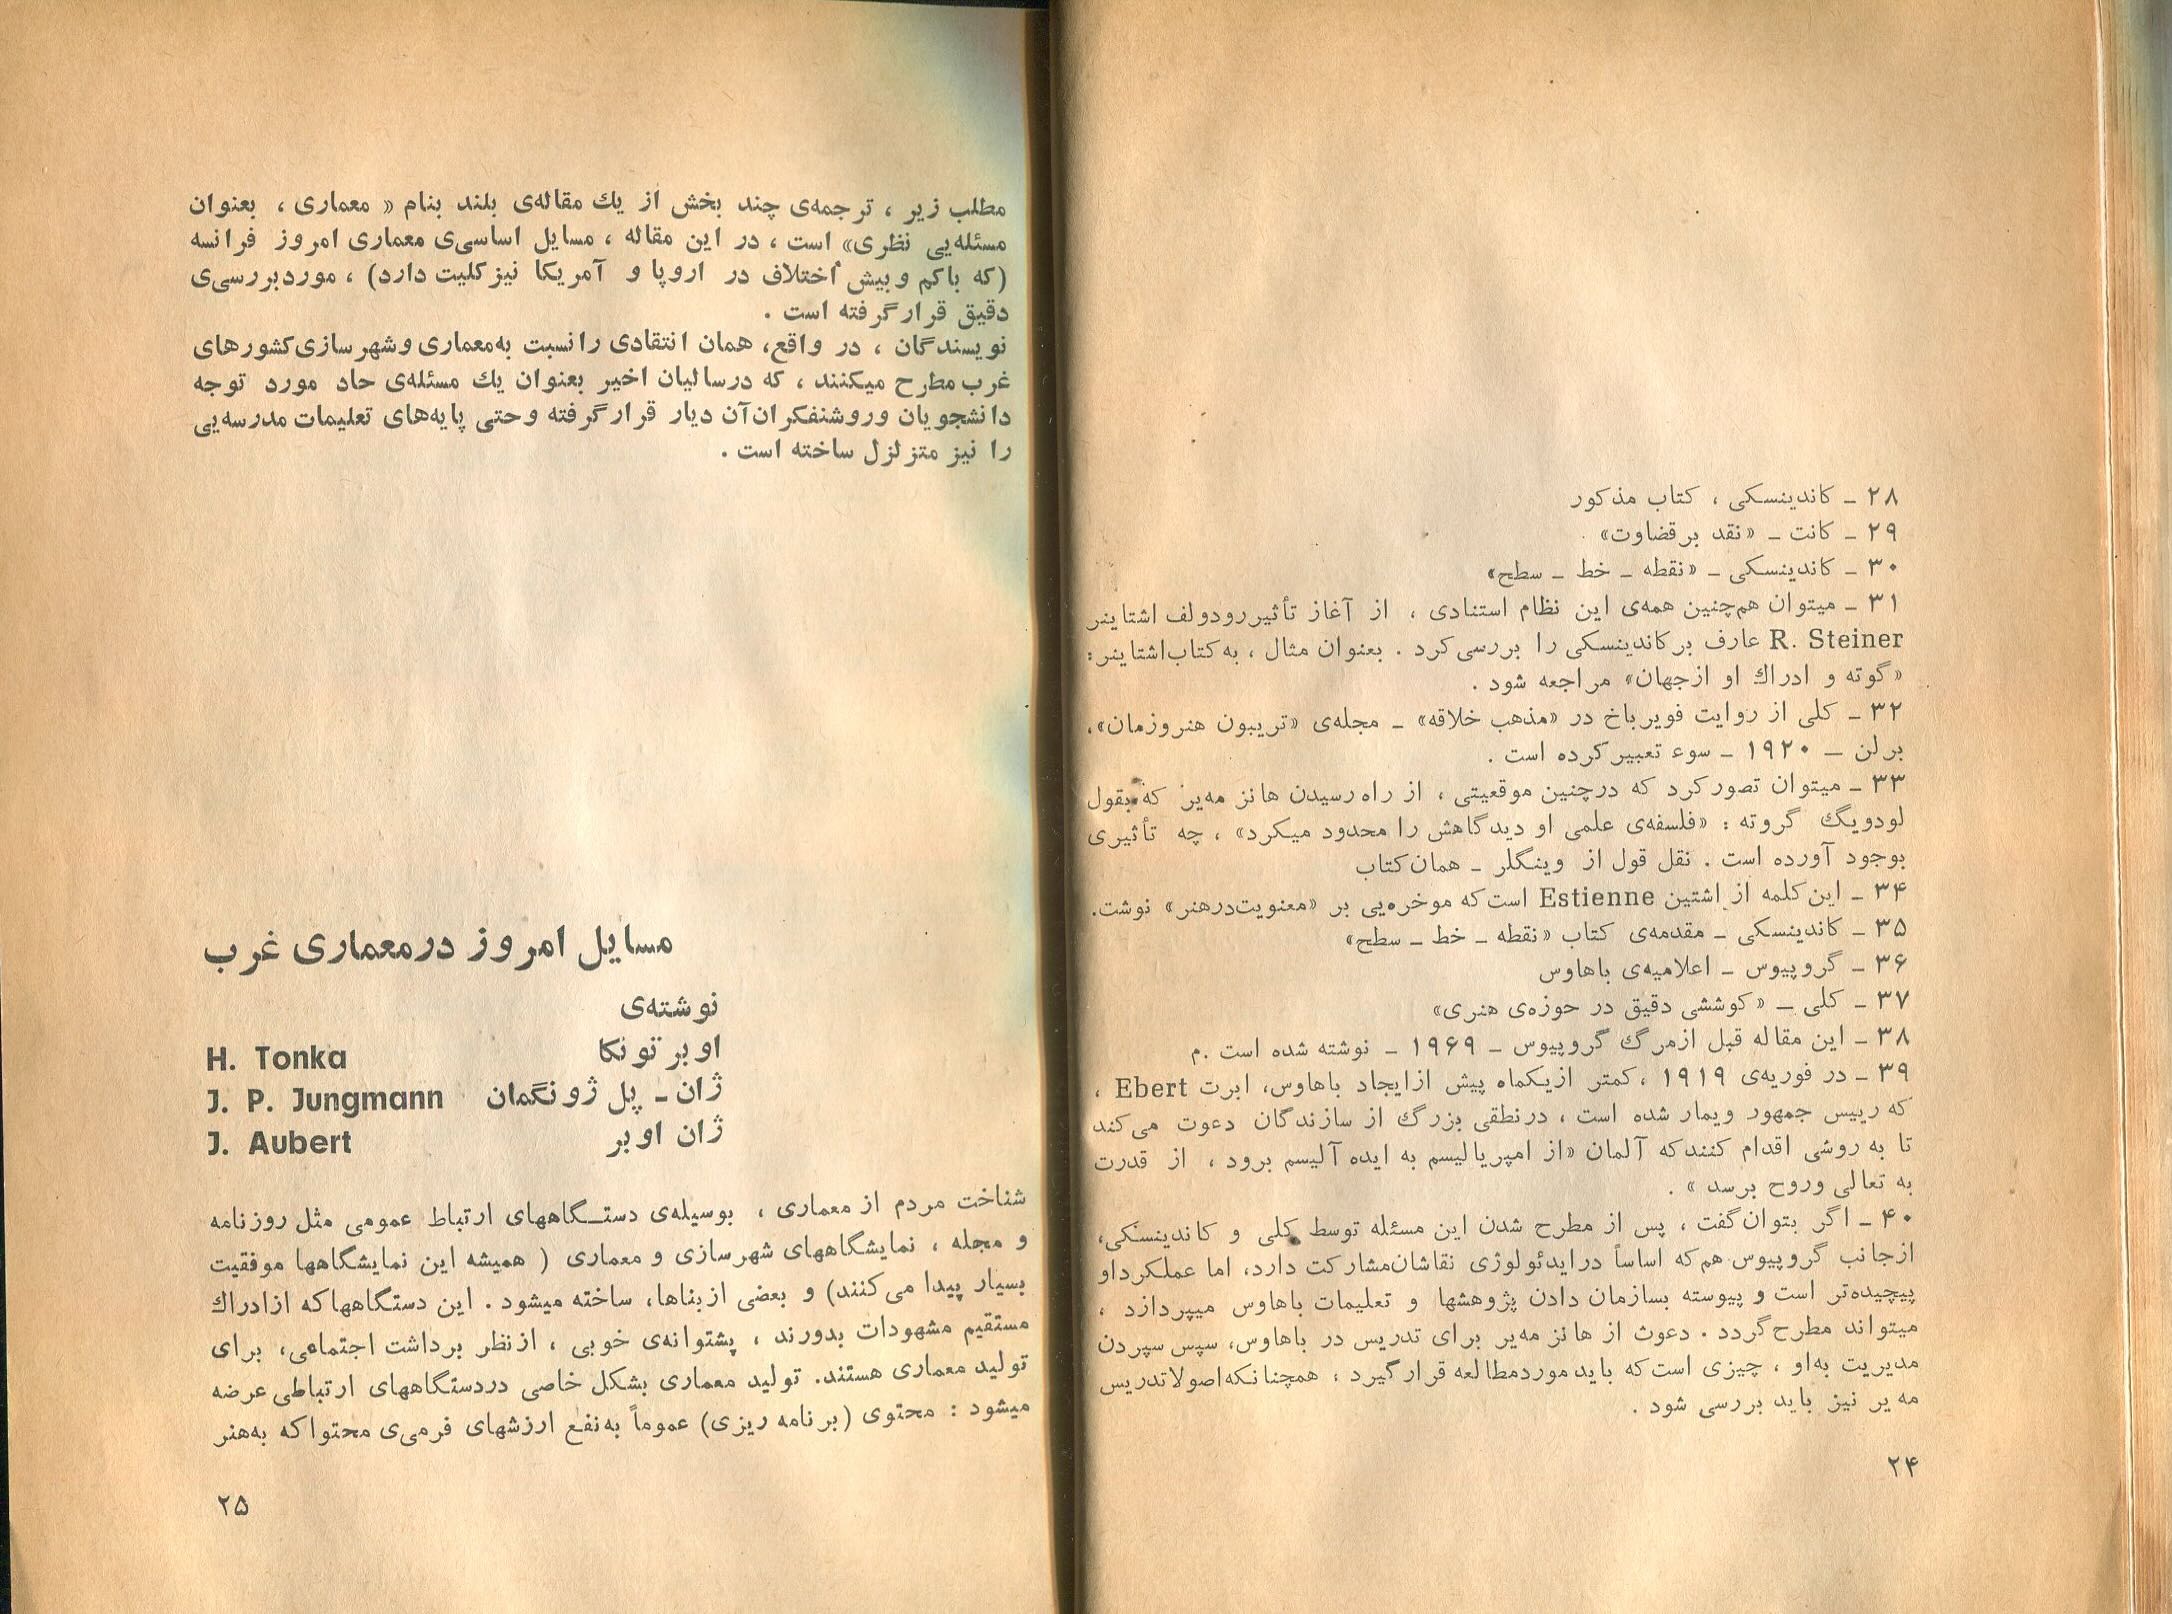 ۲۸ ـ کاندینسکی ، کتاب مذکور
۲۹ ـ کانت ـ «نقد بر قضاوت» .
۳۰ ـ کاندینسکی ـ «نقطه ـ خط ـ سطح»
۳۱ ـ میتوان هم‌چنین همه‌ی این نظام استنادی ، از آغاز تأثیر رودولف اشتاینر
R. Steiner عارف بر کاندینسکی را بررسی کرد . بعنوان مثال ، به کتاب اشتاینر :
«گوته و ادراك او از جهان» مراجعه شود .
۳۲ ـ کلی از روایت فویرباخ در «مذهب خلاقه» ـ مجله‌ی «تریبون هنر و زمان»،
برلن ـ ۱۹۲۰ ـ سوء تعبیر کرده است .
۳۳ ـ میتوان تصور کرد که در چنین موقعیتی ، از راه رسیدن هانز مه‌یر که بقول
لودویگ گروته : «فلسفه‌ی علمی او دیدگاهش را محدود میکرد» ، چه تأثیری
بوجود آورده است . نقل قول از وینگلر ـ همان کتاب
۳۴ ـ این کلمه از اشتین Estienne است که موخره‌یی بر «معنویت در هنر» نوشت.
۳۵ ـ کاندینسکی ـ مقدمه‌ی کتاب «نقطه ـ خط ـ سطح»
۳۶ ـ گروپیوس ـ اعلامیه‌ی باهاوس
۳۷ ـ کلی ـ «کوششی دقیق در حوزه‌ی هنری»
۳۸ ـ این مقاله قبل از مرگ گروپیوس ـ ۱۹۶۹ ـ نوشته شده است .م
۳۹ ـ در فوریه‌ی ۱۹۱۹ ، کمتر از یکماه پیش از ایجاد باهاوس، ابرت Ebert ،
که رییس جمهور ویمار شده است ، در نطقی بزرگ از سازندگان دعوت می‌کند
تا به روشی اقدام کنند که آلمان «از امپریالیسم به ایده‌آلیسم برود ، از قدرت
به تعالی و روح برسد » .
۴۰ ـ اگر بتوان گفت ، پس از مطرح شدن این مسئله توسط کلی و کاندینسکی،
از جانب گروپیوس هم که اساساً در ایدئولوژی نقاشان مشارکت دارد، اما عملکرد او
پیچیده‌تر است و پیوسته بسازمان دادن پژوهشها و تعلیمات باهاوس میپردازد ،
میتواند مطرح گردد . دعوت از هانز مه‌یر برای تدریس در باهاوس، سپس سپردن
مدیریت به‌او ، چیزی است که باید مورد مطالعه قرار گیرد ، همچنانکه اصولا تدریس
مه‌یر نیز باید بررسی شود .
۲۴
مطلب زیر ، ترجمه‌ی چند بخش از یك مقاله‌ی بلند بنام « معماری ، بعنوان
مسئله‌یی نظری» است ، در این مقاله ، مسایل اساسی‌ی معماری امروز فرانسه
(که باکم و بیش اختلاف در اروپا و آمریکا نیز کلیت دارد) ، مورد بررسی‌ی
دقیق قرار گرفته است .
نویسندگان ، در واقع، همان انتقادی را نسبت به‌معماری و شهرسازی کشورهای
غرب مطرح میکنند ، که در سالیان اخیر بعنوان یك مسئله‌ی حاد مورد توجه
دانشجویان و روشنفکران آن دیار قرار گرفته و حتی پایه‌های تعلیمات مدرسه‌یی
را نیز متزلزل ساخته است .
مسایل امروز در معماری غرب
نوشته‌ی
اوبر تونکا H. Tonka
ژان ـ پل ژونگمان J. P. Jungmann
ژان اوبر J. Aubert
شناخت مردم از معماری ، بوسیله‌ی دستـگاههای ارتباط عمومی مثل روزنامه
و مجله ، نمایشگاههای شهرسازی و معماری ( همیشه این نمایشگاهها موفقیت
بسیار پیدا می‌کنند) و بعضی از بناها، ساخته میشود . این دستگاهها که از ادراك
مستقیم مشهودات بدورند ، پشتوانه‌ی خوبی ، از نظر برداشت اجتماعی، برای
تولید معماری هستند. تولید معماری بشکل خاصی در دستگاههای ارتباطی عرضه
میشود : محتوی (برنامه ریزی) عموماً به‌نفع ارزشهای فرمی‌ی محتوا که به‌هنر
۲۵